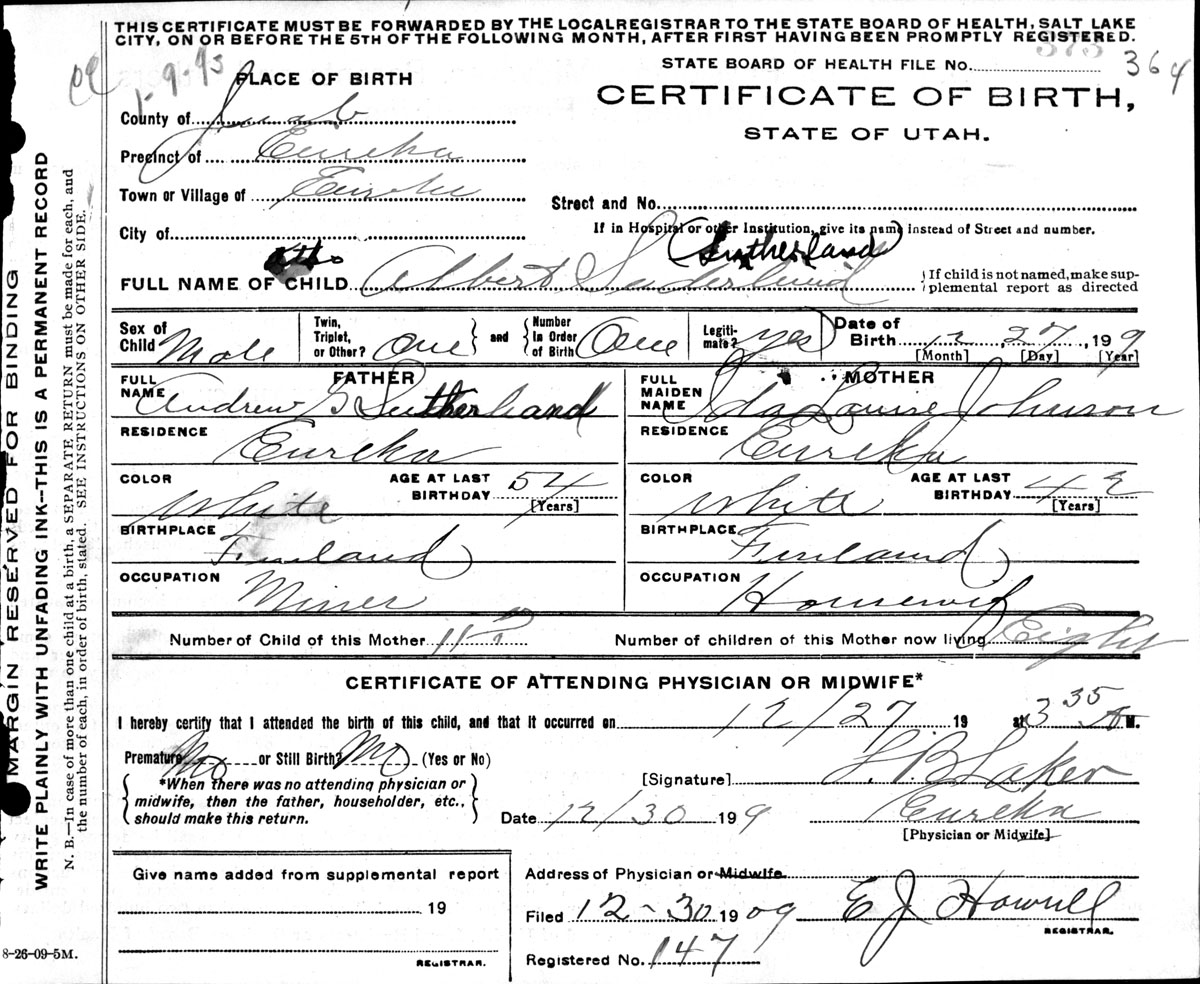 THIS CERTIFICATE MUST BE FORWARDED BY THE LOCAL REGISTRAR TO THE STATE BOARD OF HEALTH, SALT LAKE
CITY, ON OR BEFORE THE 5TH OF THE FOLLOWING MONTH, AFTER FIRST HAVING BEEN PROMPTLY REGISTERED.
STATE BOARD OF HEALTH FILE No. 373 364
PLACE OF BIRTH
CERTIFICATE OF BIRTH,
STATE OF UTAH.
County of Juab
Precinct of Eureka
Town or Village of Eureka
Street and No.
City of
If in Hospital or other Institution, give its name instead of Street and number.
(Sutherland)
FULL NAME OF CHILD Albert Suderlund
If child is not named, make sup-
plemental report as directed
Sex of Child Male
Twin, Triplet, or Other? One and Number in Order of Birth One
Legiti-mate? yes
Date of Birth 12 27, 199
[Month] [Day] [Year]
FATHER
FULL NAME Andrew G Sutherland
RESIDENCE Eureka
COLOR White
AGE AT LAST BIRTHDAY 54
[Years]
BIRTHPLACE Finland
OCCUPATION Miner
MOTHER
FULL MAIDEN NAME Ida Louise Johnson
RESIDENCE Eureka
COLOR White
AGE AT LAST BIRTHDAY 42
[Years]
BIRTHPLACE Finland
OCCUPATION Housewife
Number of Child of this Mother 11
Number of children of this Mother now living Eight
CERTIFICATE OF ATTENDING PHYSICIAN OR MIDWIFE*
I hereby certify that I attended the birth of this child, and that it occurred on 12/27 19 at 3 35 A M.
Premature No or Still Birth? No (Yes or No)
*When there was no attending physician or
midwife, then the father, householder, etc.,
should make this return.
[Signature] Laker
Date 12/30 199
Eureka
[Physician or Midwife]
Give name added from supplemental report
19
REGISTRAR.
Address of Physician or Midwife
Filed 12-30 1909 E J Howell
REGISTRAR.
Registered No. 147
8-26-09-5M.
MARGIN RESERVED FOR BINDING
WRITE PLAINLY WITH UNFADING INK--THIS IS A PERMANENT RECORD
N. B.—In case of more than one child at a birth, a SEPARATE RETURN must be made for each, and
the number of each, in order of birth, stated. SEE INSTRUCTIONS ON OTHER SIDE.